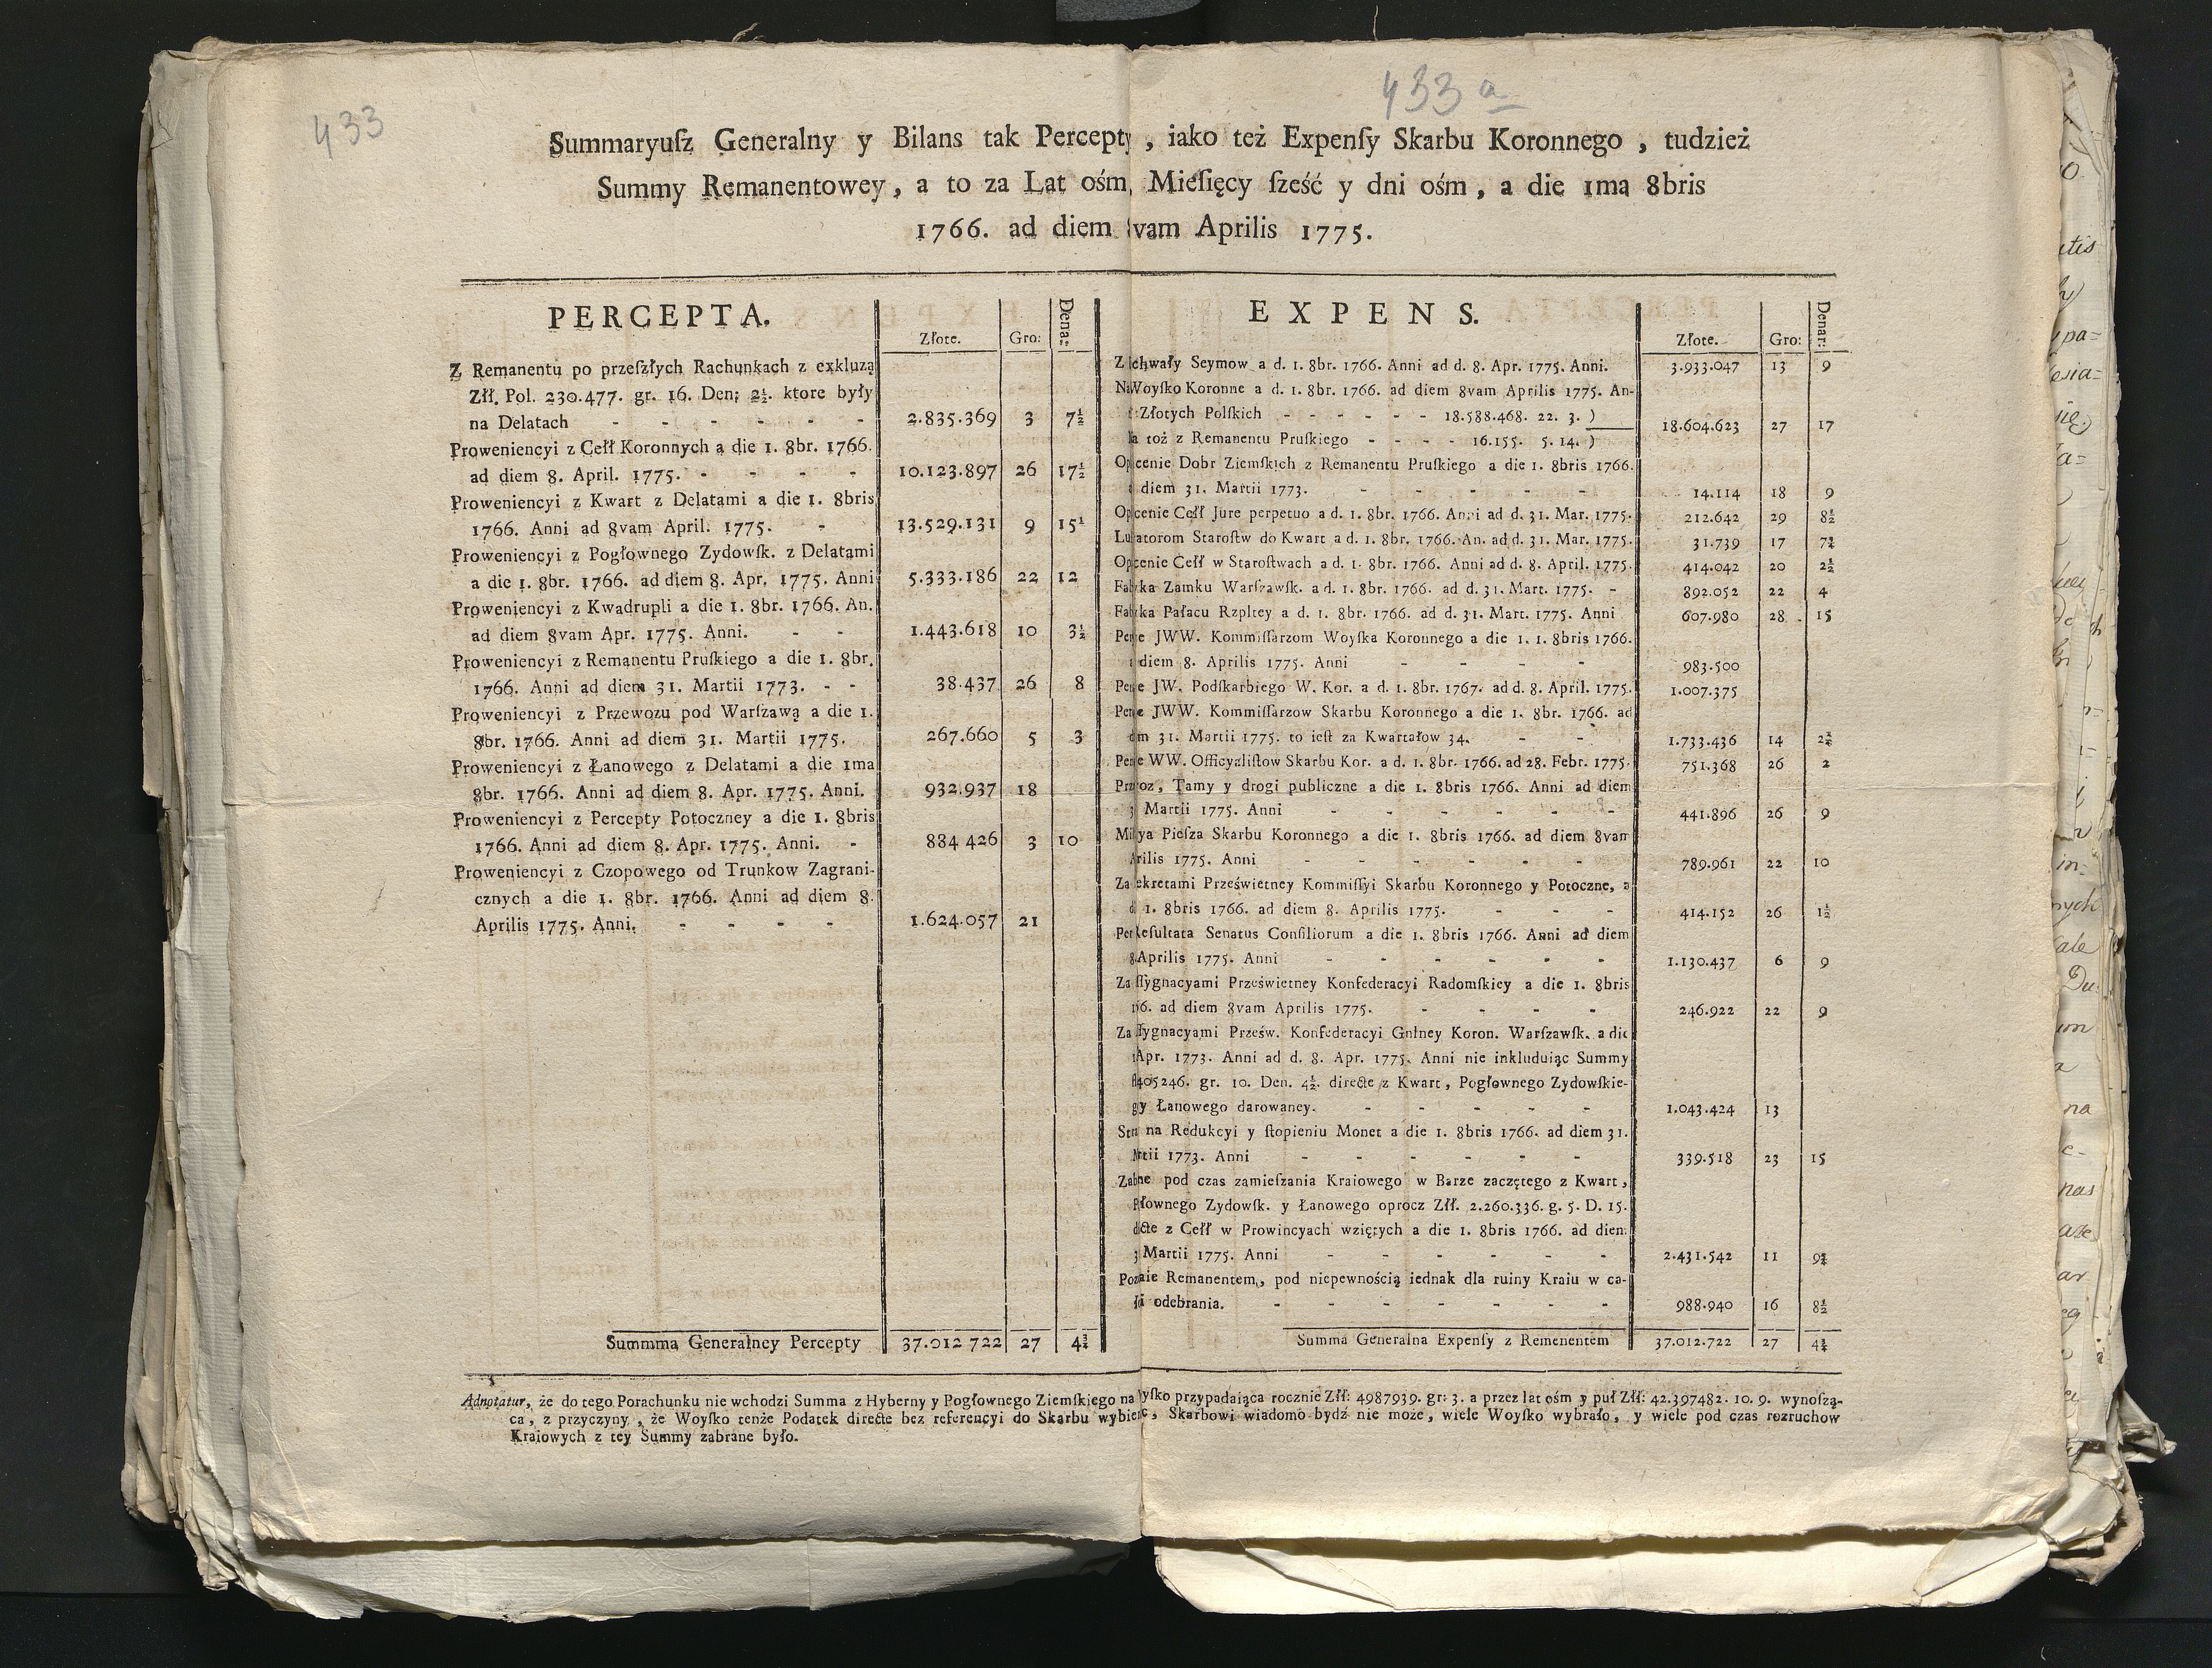 433
433 a
Summaryuſz Generalny y Bilans tak Percepty, iako też Expenſy Skarbu Koronnego, tudzież
Summy Remanentowey, a to za Lat ośm, Mieſięcy ſześć y dni ośm, a die 1ma 8bris
1766. ad diem 8vam Aprilis 1775.
PERCEPTA.
Złote. Gro: Denar:
Z Remanentu po przeſzłych Rachunkach z exkluzą
Złł. Pol. 230.477. gr. 16. Den: 2½. ktore były
na Delatach - - - - - - 2.835.369 3 7½
Proweniencyi z Cełł Koronnych a die 1. 8br. 1766.
ad diem 8. April. 1775. - - - - 10.123.897 26 17½
Proweniencyi z Kwart z Delatami a die 1. 8bris
1766. Anni ad 8vam April. 1775. - 13.529.131 9 15
Proweniencyi z Pogłownego Zydowſk. z Delatami
a die 1. 8br. 1766. ad diem 8. Apr. 1775. Anni 5.333.186 22 12
Proweniencyi z Kwadrupli a die 1. 8br. 1766. An.
ad diem 8vam Apr. 1775. Anni. - - 1.443.618 10 3½
Proweniencyi z Remanentu Pruſkiego a die 1. 8br.
1766. Anni ad diem 31. Martii 1773. - - 38.437 26 8
Proweniencyi z Przewozu pod Warſzawą a die 1.
8br. 1766. Anni ad diem 31. Martii 1775. 267.660 5 3
Proweniencyi z Łanowego z Delatami a die 1ma
8br. 1766. Anni ad diem 8. Apr. 1775. Anni. 932.937 18
Proweniencyi z Percepty Potoczney a die 1. 8bris
1766. Anni ad diem 8. Apr. 1775. Anni. - 884 426 3 10
Proweniencyi z Czopowego od Trunkow Zagrani-
cznych a die 1. 8br. 1766. Anni ad diem 8.
Aprilis 1775. Anni. - - - - 1.624.057 21
Summma Generalney Percepty 37.012 722 27 4¾
EXPENS.
Złote. Gro: Denar:
Z chwały Seymow a d. 1. 8br. 1766. Anni ad d. 8. Apr. 1775. Anni. 3.933.047 13 9
Na Woyſko Koronne a d. 1. 8br. 1766. ad diem 8vam Aprilis 1775. An-
Złotych Polſkich - - - - - - 18.588.468. 22. 3. )
toż z Remanentu Pruſkiego - - - - 16.155. 5. 14. ) 18.604.623 27 17
Op cenie Dobr Ziemſkich z Remanentu Pruſkiego a die 1. 8bris 1766.
diem 31. Martii 1773. - - - - - 14.114 18 9
Op cenie Cełł Jure perpetuo a d. 1. 8br. 1766. Anni ad d. 31. Mar. 1775. 212.642 29 8½
Lu atorom Staroſtw do Kwart a d. 1. 8br. 1766. An. ad d. 31. Mar. 1775. 31.739 17 7¾
Op cenie Cełł w Staroſtwach a d. 1. 8br. 1766. Anni ad d. 8. April. 1775. 414.042 20 2½
Fa ka Zamku Warſzawſk. a d. 1. 8br. 1766. ad d. 31. Mart. 1775. - 892.052 22 4
Fa ka Pałacu Rzpltey a d. 1. 8br. 1766. ad d. 31. Mart. 1775. Anni 607.980 28 15
Pen e JWW. Kommiſſarzom Woyſka Koronnego a die 1. 1. 8bris 1766.
diem 8. Aprilis 1775. Anni - - - - 983.500
Pen e JW. Podſkarbiego W. Kor. a d. 1. 8br. 1767. ad d. 8. April. 1775. 1.007.375
Pen e JWW. Kommiſſarzow Skarbu Koronnego a die 1. 8br. 1766. ad
m 31. Martii 1775. to ieſt za Kwartałow 34. - - 1.733.436 14 2¾
Pen e WW. Officyaliſtow Skarbu Kor. a d. 1. 8br. 1766. ad 28. Febr. 1775. 751.368 26 2
Prz oz, Tamy y drogi publiczne a die 1. 8bris 1766. Anni ad diem
3 Martii 1775. Anni - - - - - - 441.896 26 9
Mi ya Pieſza Skarbu Koronnego a die 1. 8bris 1766. ad diem 8vam
rilis 1775. Anni - - - - - - 789.961 22 10
Za ekretami Prześwietney Kommiſſyi Skarbu Koronnego y Potoczne, a
d 1. 8bris 1766. ad diem 8. Aprilis 1775. - - - 414.152 26 1½
Per Reſultata Senatus Conſiliorum a die 1. 8bris 1766. Anni ad diem
8 Aprilis 1775. Anni - - - - - - 1.130.437 6 9
Za ſſygnacyami Prześwietney Konfederacyi Radomſkiey a die 1. 8bris
6. ad diem 8vam Aprilis 1775. - - - - - 246.922 22 9
Za ſſygnacyami Prześw. Konfederacyi Gnlney Koron. Warſzawſk. a die
Apr. 1773. Anni ad d. 8. Apr. 1775. Anni nie inkluduiąc Summy
405246. gr. 10. Den. 4½. directe z Kwart, Pogłownego Zydowſkie-
g y Łanowego darowaney. - - - - - 1.043.424 13
Str na Redukcyi y ſtopieniu Monet a die 1. 8bris 1766. ad diem 31.
rtii 1773. Anni - - - - - - 339.518 23 15
Zab ne pod czas zamieſzania Kraiowego w Barze zaczętego z Kwart,
P łownego Zydowſk. y Łanowego oprocz Złł. 2.260.336. g. 5. D. 15.
d cte z Cełł w Prowincyach wziętych a die 1. 8bris 1766. ad diem
3 Martii 1775. Anni - - - - - - 2.431.542 11 9¾
Poz aie Remanentem, pod niepewnością iednak dla ruiny Kraiu w ca-
ł i odebrania. - - - - - - - 988.940 16 8½
Summa Generalna Expenſy z Remenentem 37.012.722 27 4¾
Adnotatur, że do tego Porachunku nie wchodzi Summa z Hyberny y Pogłownego Ziemſkiego na yſko przypadaiąca rocznie Złł: 4987939. gr: 3. a przez lat ośm y puł Złł: 42.397482. 10. 9. wynoſzą-
ca, z przyczyny, że Woyſko tenże Podatek directe bez referencyi do Skarbu wybierc, Skarbowi wiadomo bydź nie może, wiele Woyſko wybrało, y wiele pod czas rozruchow
Kraiowych z tey Summy zabrane było.